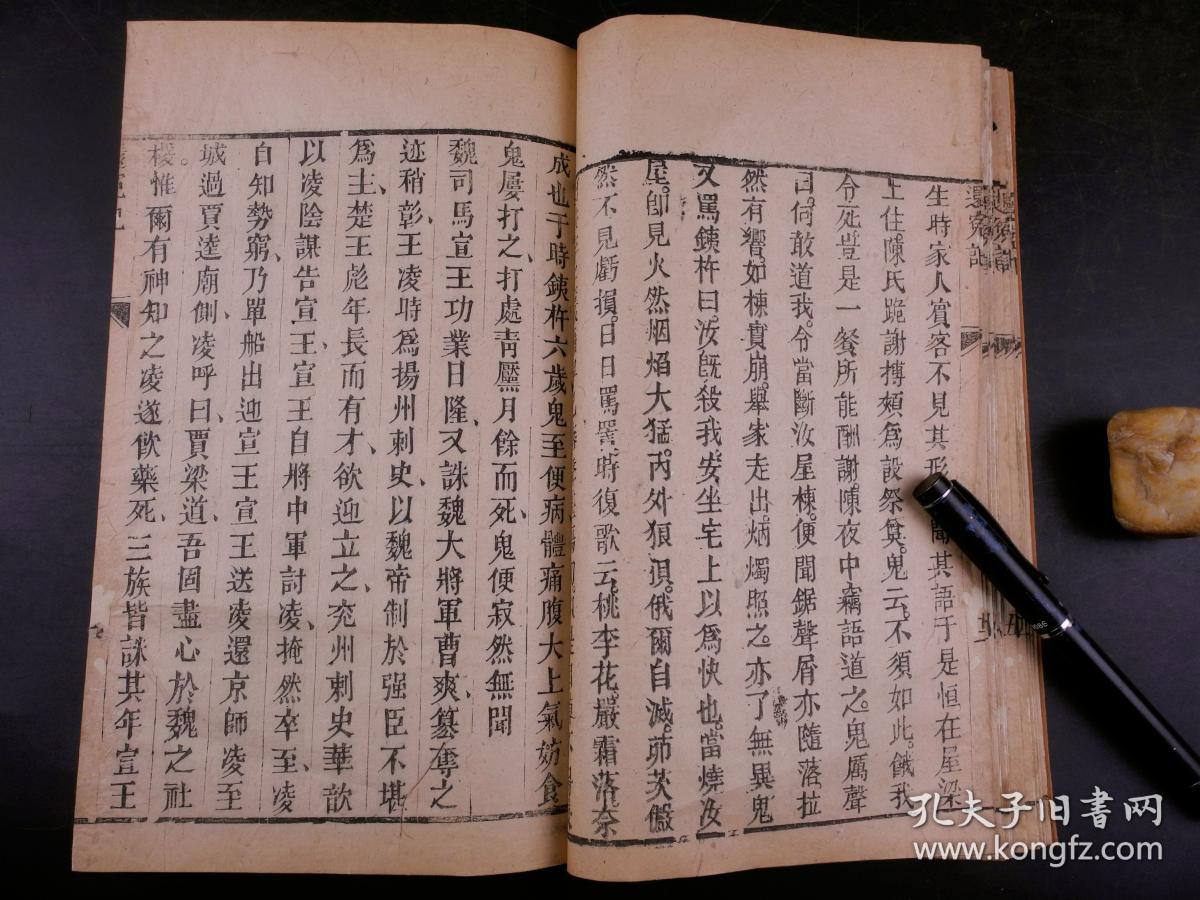 還冤記
生時家人賓客不見其形聞其語于是恒在屋梁
上住陳氏跪謝摶頰爲設祭奠。鬼云。不須如此。餓我
令死。豈是一餐所能酬謝。陳夜中竊語道之。鬼厲聲
曰。何敢道我。今當斷汝屋棟。便聞鋸聲。屑亦隨落。拉
然有響。如棟實崩。舉家走出。炳燭照之。亦了無異。鬼
又罵鐵杵曰。汝旣殺我。安坐宅上以爲快也。當燒汝
屋。卽見火然。烟焰大猛。內外狼狽。俄爾自滅。茆茨儼
然。不見虧損。日日罵詈。時復歌云。桃李花。嚴霜落奈
成也于時鐵杵六歲鬼至便病體痛腹大上氣妨食
鬼屢打之、打處青黶月餘而死、鬼便寂然無聞
魏司馬宣王功業日隆、又誅魏大將軍曹爽、簒奪之
迹稍彰、王凌時爲揚州刺史、以魏帝制於强臣不堪
爲主、楚王彪年長而有才、欲迎立之、兖州刺史華歆
以凌陰謀告宣王、宣王自將中軍討凌、掩然卒至、凌
自知勢窮、乃單船出迎宣王宣王送凌還京師凌至
城過賈逵廟側、凌呼曰、賈梁道、吾固盡心於魏之社
稷。惟爾有神知之凌遂飲藥死、三族皆誅其年宣王
孔夫子旧书网
www.kongfz.com